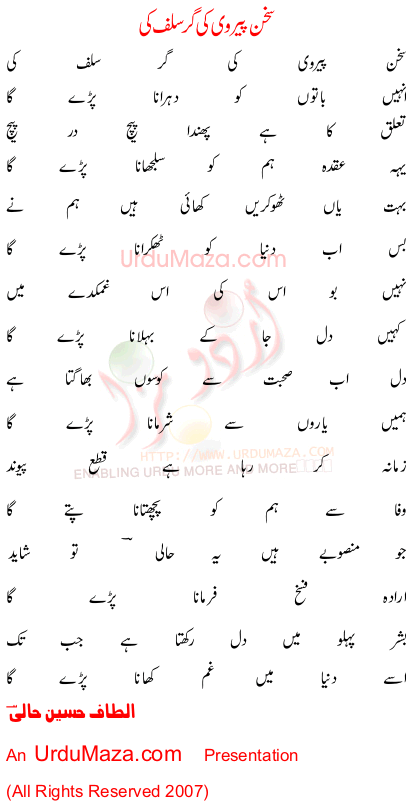 سخن پیروی کی گر سلف کی
سخن پیروی کی گر سلف کی
انہیں باتوں کو دہرانا پڑے گا
تعلق کا ہے پھندا پیچ در پیچ
یہہ عقدہ ہم کو سلجھانا پڑے گا
بہت یاں ٹھوکریں کھائی ہیں ہم نے
بس اب دنیا کو ٹھکرانا پڑے گا
UrduMaza.com
نہیں بو اس کی اس غمکدے میں
کہیں دل جا کے بہلانا پڑے گا
اردو مزا
دل اب صحبت سے کوسوں بھاگتا ہے
ہمیں یاروں سے شرمانا پڑے گا
HTTP://WWW.URDUMAZA.COM
زمانہ کر رہا ہے قطع پیوند
ENABLING URDU MORE AND MORE
وفا سے ہم کو پچھتانا پتے گا
جو منصوبے ہیں یہ حالی تو شاید
ارادہ فسخ فرمانا پڑے گا
بشر پہلو میں دل رکھتا ہے جب تک
اسے دنیا میں غم کھانا پڑے گا
الطاف حسین حالیؔ
An UrduMaza.com Presentation
(All Rights Reserved 2007)